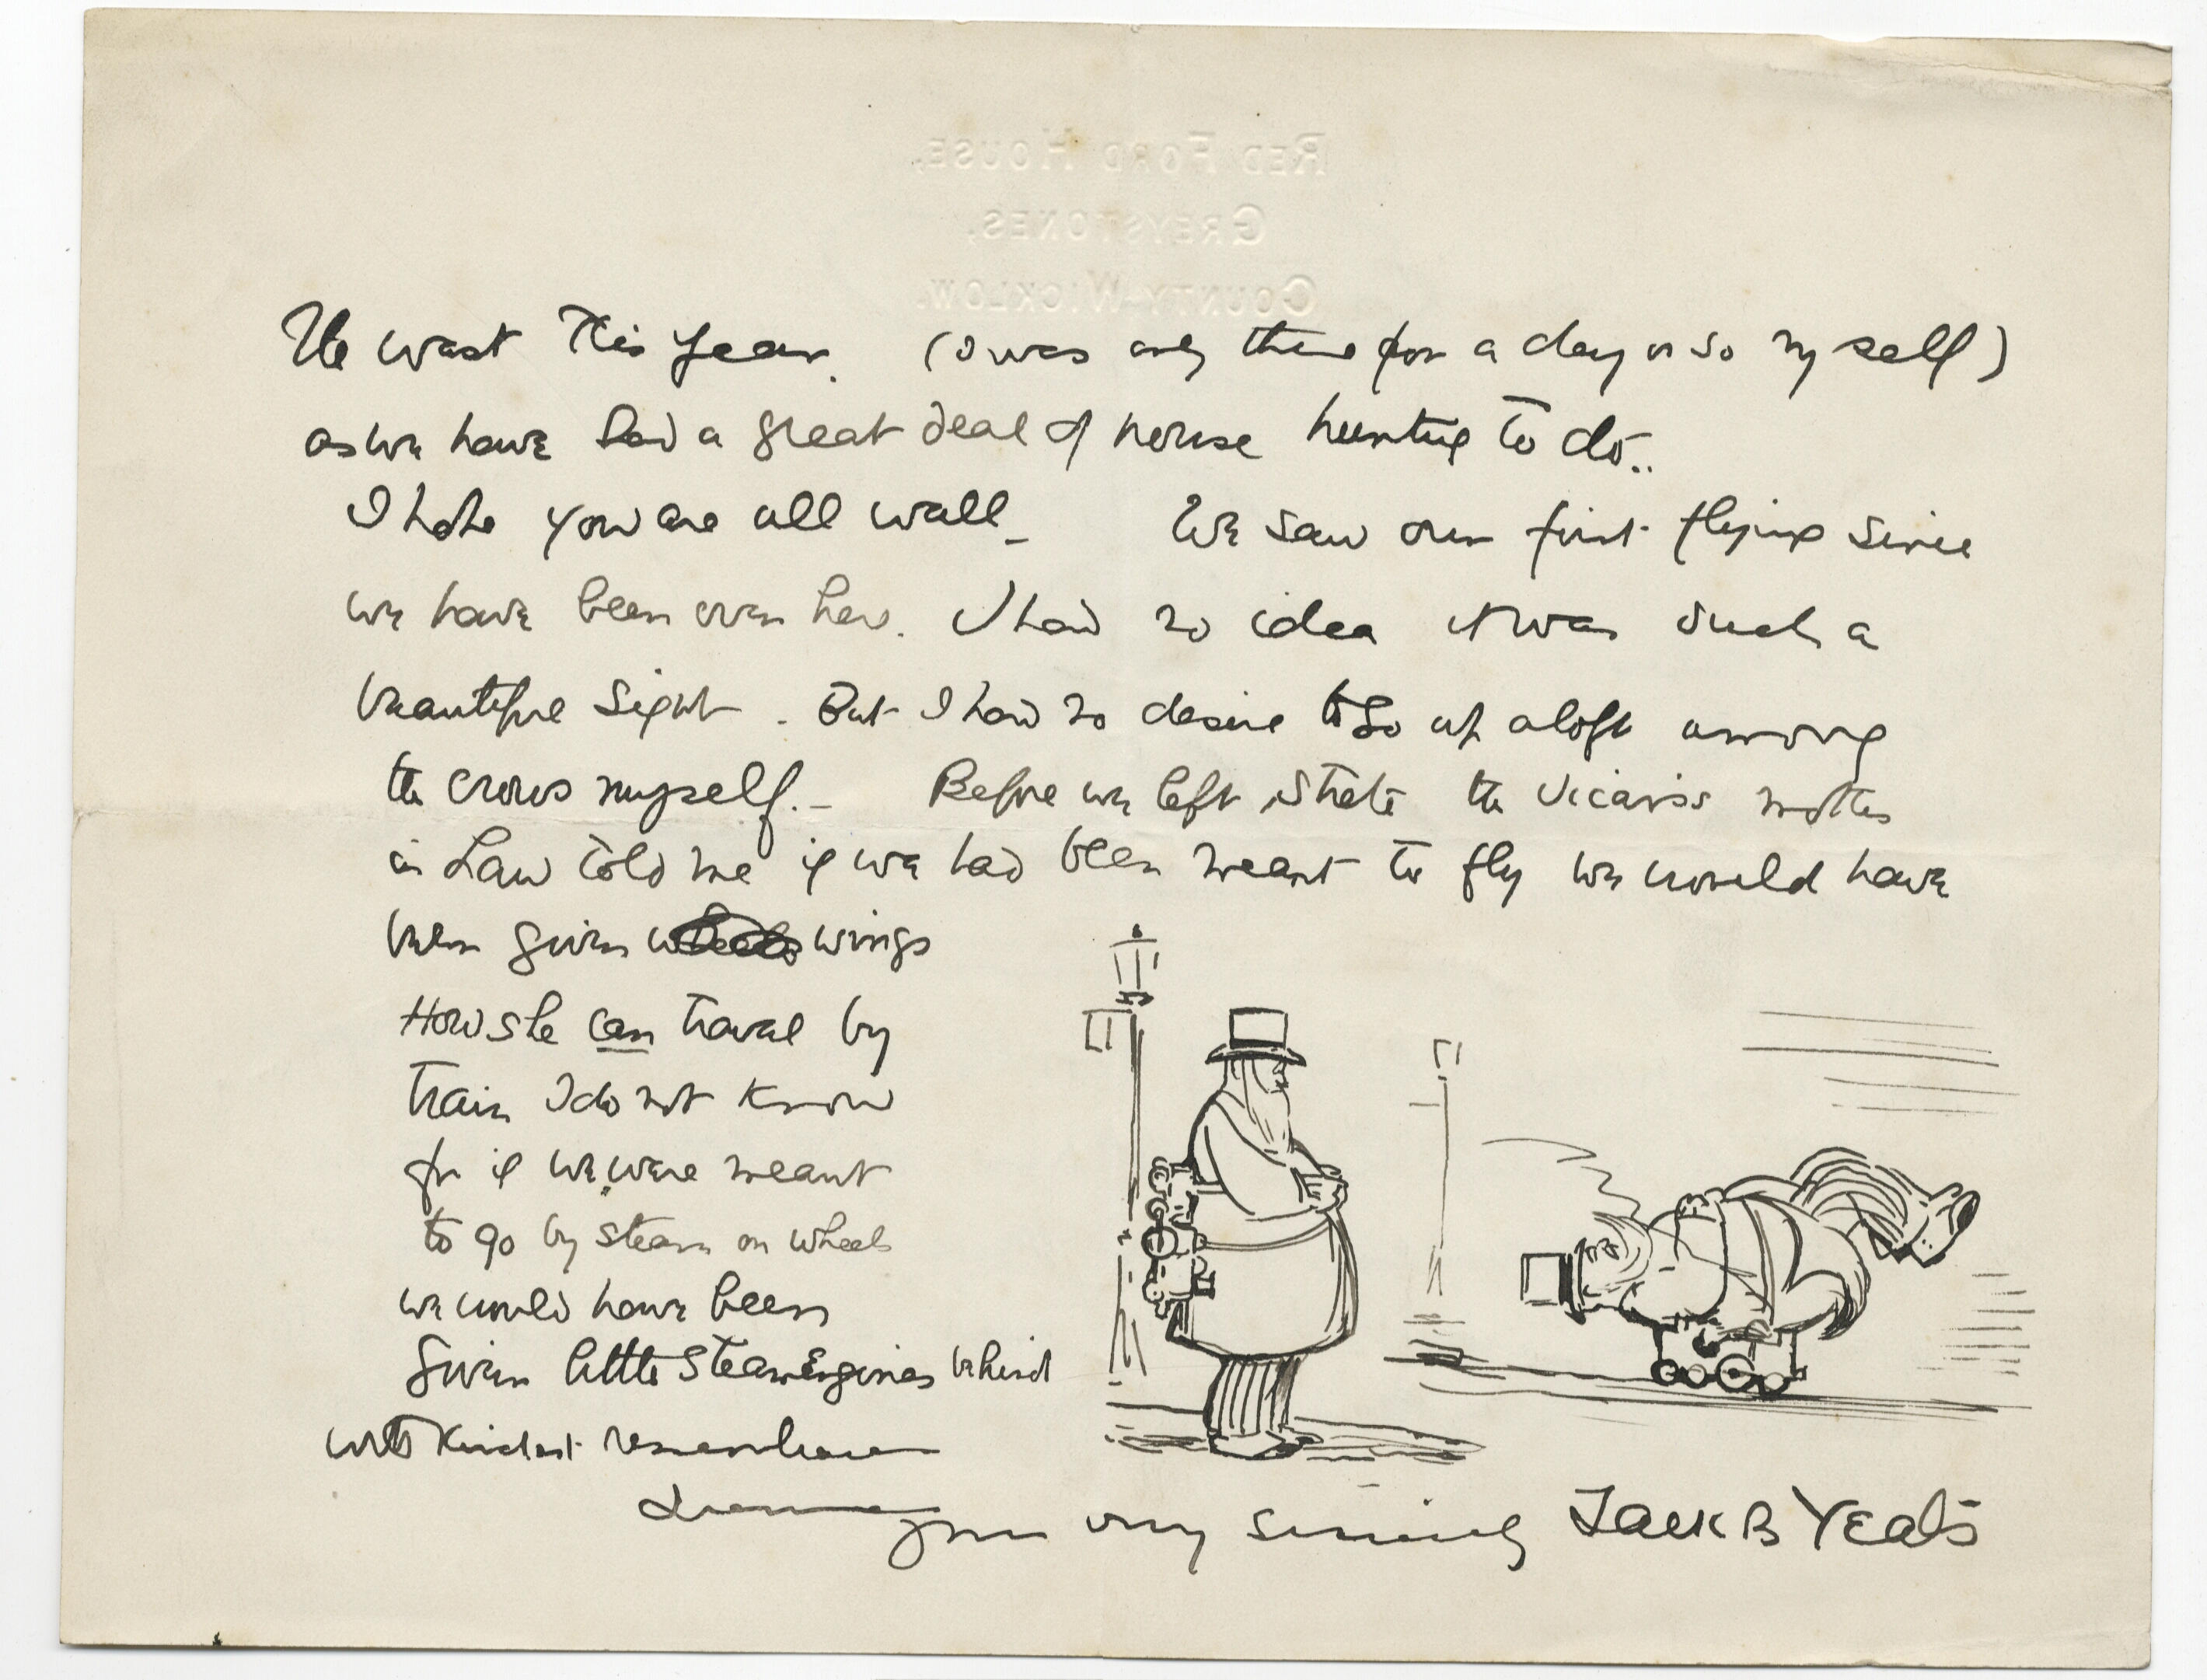 RED FORD HOUSE,
GREYSTONES,
COUNTY WICKLOW.
the west this year. (I was only there for a day or so myself)
as we have had a great deal of house hunting to do..
I hope you are all well_ We saw our first flying since
we have been over here. I had no idea it was such a
beautiful sight. But I had no desire to go up aloft among
the crows myself._ Before we left Strete the Vicars's mother
in Law told me if we had been meant to fly we would have
been given wheels wings
How she can travel by
train I do not know
for if we were meant
to go by steam on wheels
we would have been
given little Steam Engines behind
with Kindest remembrances
yours very sincerely Jack B Yeats